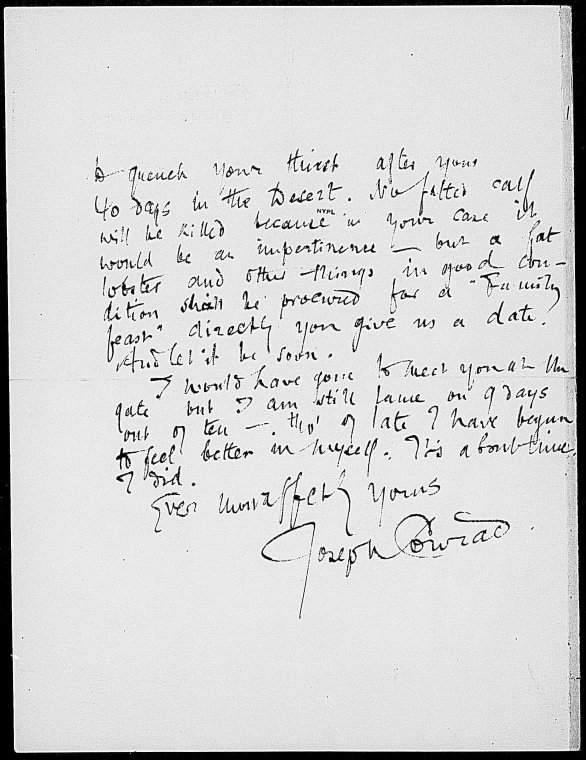 to quench your thirst after your
40 days in the Desert. No fatted calf
will be killed because in your case it
NYPL
would be an impertinence – but a fat
lobster and other things in good con–
dition shall be procured for a "Family
feast" directly you give us a date.
And let it be soon.
I would have gone to meet you at the
gate but I am still lame on 9 days
out of ten –. tho' of late I have begun
to feel better in myself. It's about time
I did.
Ever most affectly yours
Joseph Conrad.